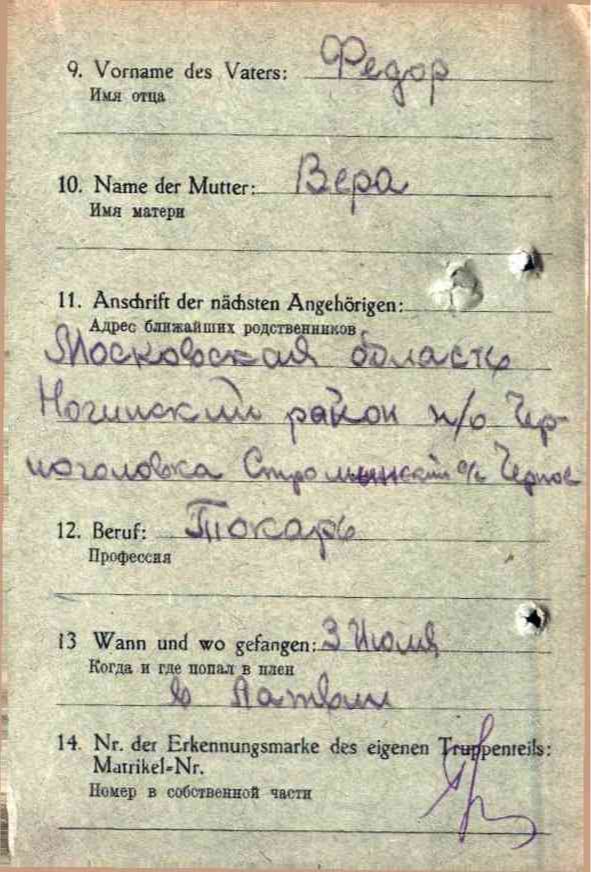 9. Vorname des Vaters: Федор
Имя отца
10. Name der Mutter: Вера
Имя матери
11. Anschrift der nächsten Angehörigen:
Адрес ближайших родственников
Московская область
Ногинский район п/о Чер-
ноголовка Стромынский с/с Черное
12. Beruf: Токарь
Профессия
13 Wann und wo gefangen: 3 Июля
Когда и где попал в плен
в Латвии
14. Nr. der Erkennungsmarke des eigenen Truppenteils:
Matrikel-Nr.
Номер в собственной части